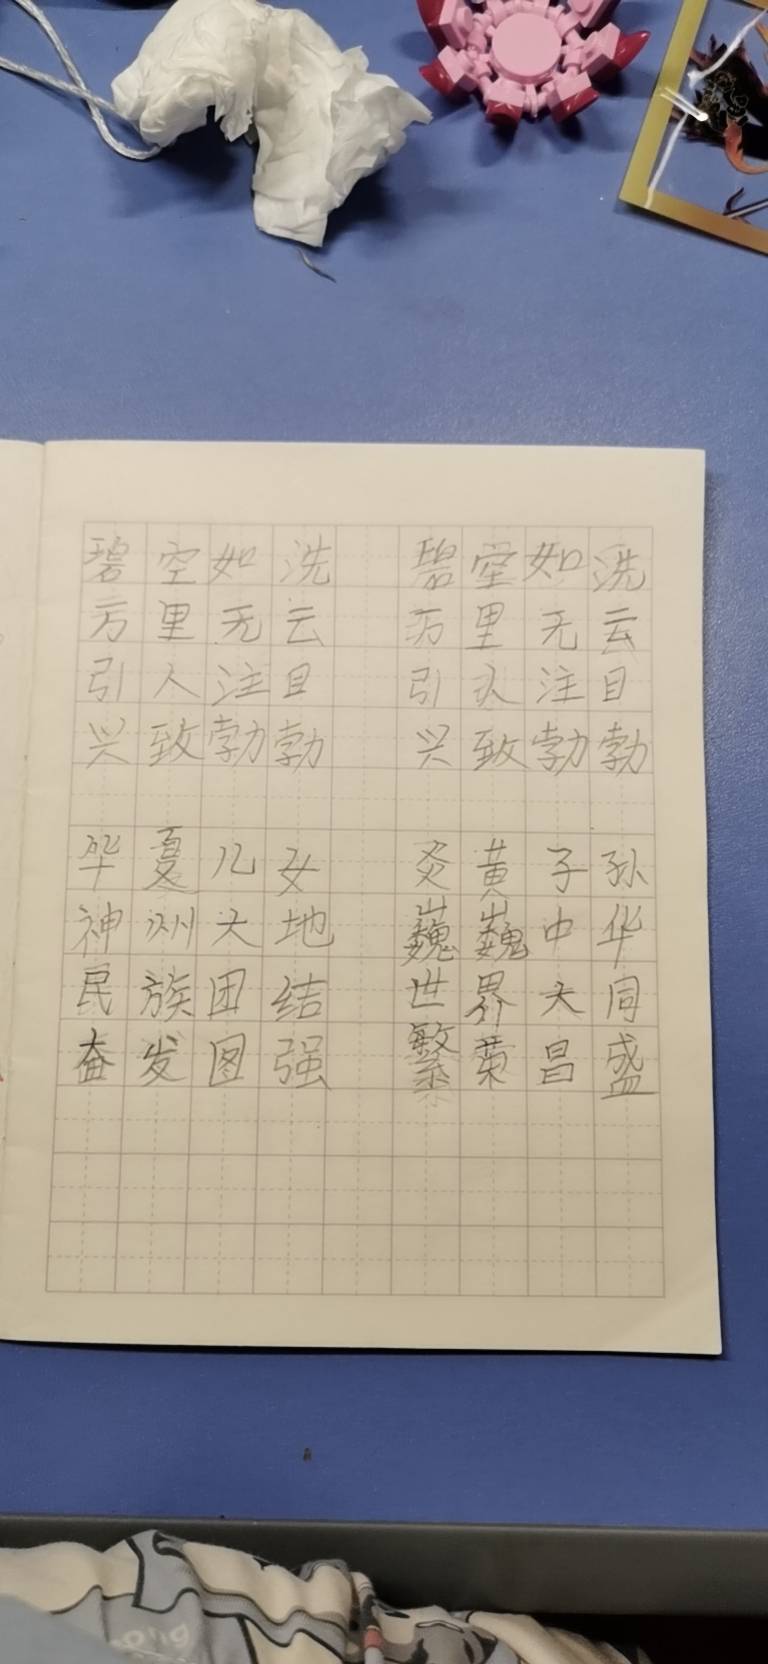 碧空如洗 碧空如洗
万里无云 万里无云
引人注目 引人注目
兴致勃勃 兴致勃勃
华夏儿女 炎黄子孙
神州大地 巍巍中华
民族团结 世界大同
奋发图强 繁荣昌盛